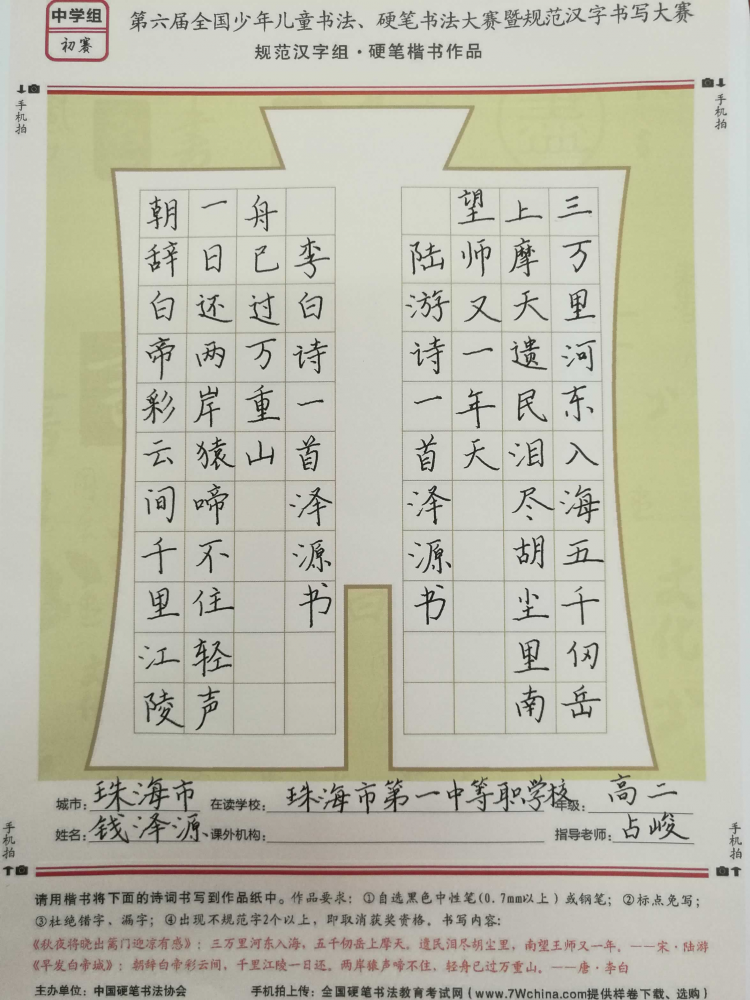 中学组
初赛
第六届全国少年儿童书法、硬笔书法大赛暨规范汉字书写大赛
规范汉字组·硬笔楷书作品
手机拍
手机拍
三万里河东入海五千仞岳
上摩天遗民泪尽胡尘里南
望师又一年天
陆游诗一首泽源书
朝辞白帝彩云间千里江陵
一日还两岸猿啼不住轻声
舟已过万重山
李白诗一首泽源书
城市：珠海市 在读学校：珠海市第一中等职学校 年级：高二
姓名：钱泽源 课外机构： 指导老师：占峻
手机拍
手机拍
请用楷书将下面的诗词书写到作品纸中。作品要求：①自选黑色中性笔(0.7mm以上)或钢笔；②标点免写；
③杜绝错字、漏字；④出现不规范字2个以上，即取消获奖资格。书写内容：
《秋夜将晓出篱门迎凉有感》：三万里河东入海，五千仞岳上摩天。遗民泪尽胡尘里，南望王师又一年。——宋·陆游
《早发白帝城》：朝辞白帝彩云间，千里江陵一日还。两岸猿声啼不住，轻舟已过万重山。——唐·李白
主办单位：中国硬笔书法协会 手机拍上传：全国硬笔书法教育考试网（www.7Wchina.com提供样卷下载、选购）